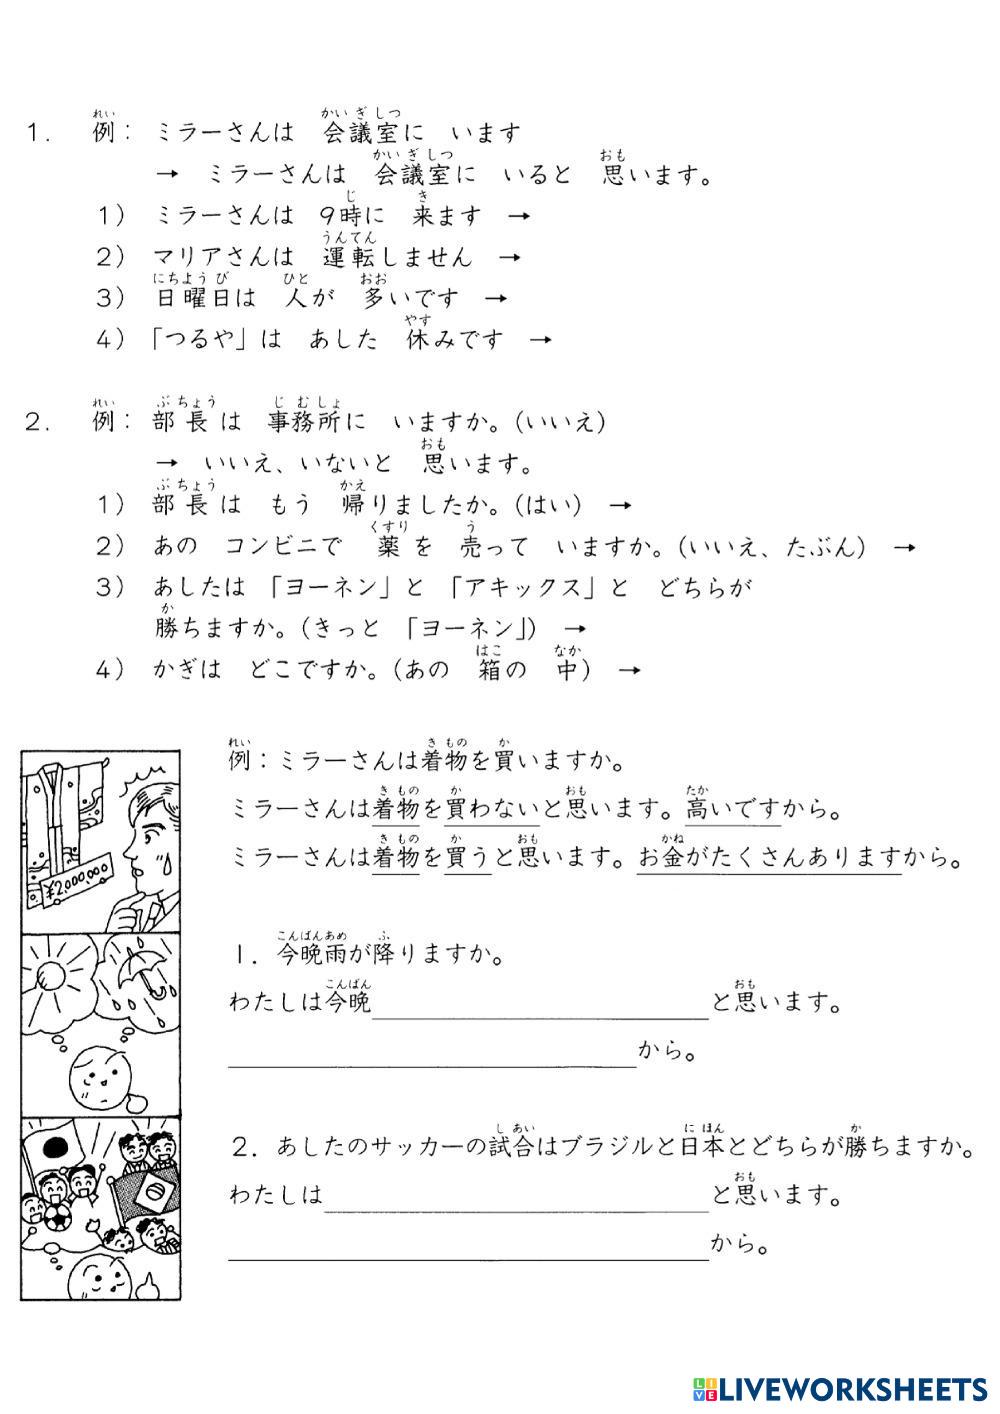 1. 例：ミラーさんは 会議室に います
→ ミラーさんは 会議室に いると 思います。
1) ミラーさんは 9時に 来ます →
2) マリアさんは 運転しません →
3) 日曜日は 人が 多いです →
4)「つるや」は あした 休みです →
2. 例：部長は 事務所に いますか。(いいえ)
→ いいえ、いないと 思います。
1) 部長は もう 帰りましたか。(はい) →
2) あの コンビニで 薬を 売って いますか。(いいえ、たぶん) →
3) あしたは 「ヨーネン」と 「アキックス」と どちらが
勝ちますか。(きっと 「ヨーネン」) →
4) かぎは どこですか。(あの 箱の 中) →
例：ミラーさんは着物を買いますか。
ミラーさんは着物を買わないと思います。高いですから。
ミラーさんは着物を買うと思います。お金がたくさんありますから。
¥2,000,000
1. 今晩雨が降りますか。
わたしは今晩____と思います。
____から。
2. あしたのサッカーの試合はブラジルと日本とどちらが勝ちますか。
わたしは____と思います。
____から。
LIVEWORKSHEETS